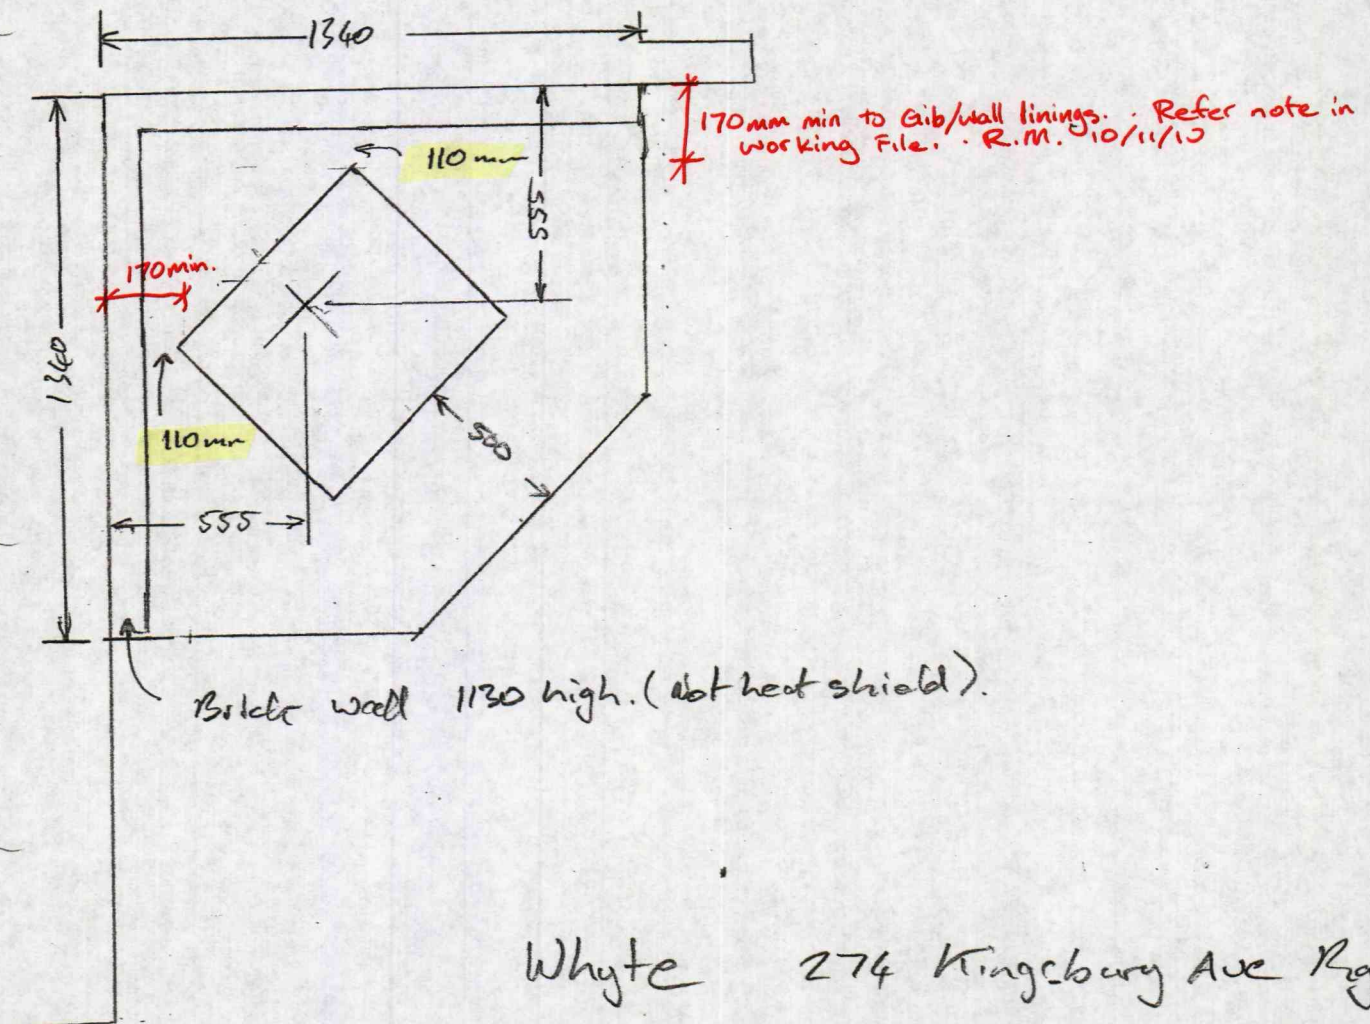 1340
170mm min to Gib/wall linings. Refer note in
working File. R.M. 10/11/10
110mm
555
170min.
1340
500
110mm
555
Brick wall 1130 high. (Not heat shield).
Whyte 274 Kingsbury Ave